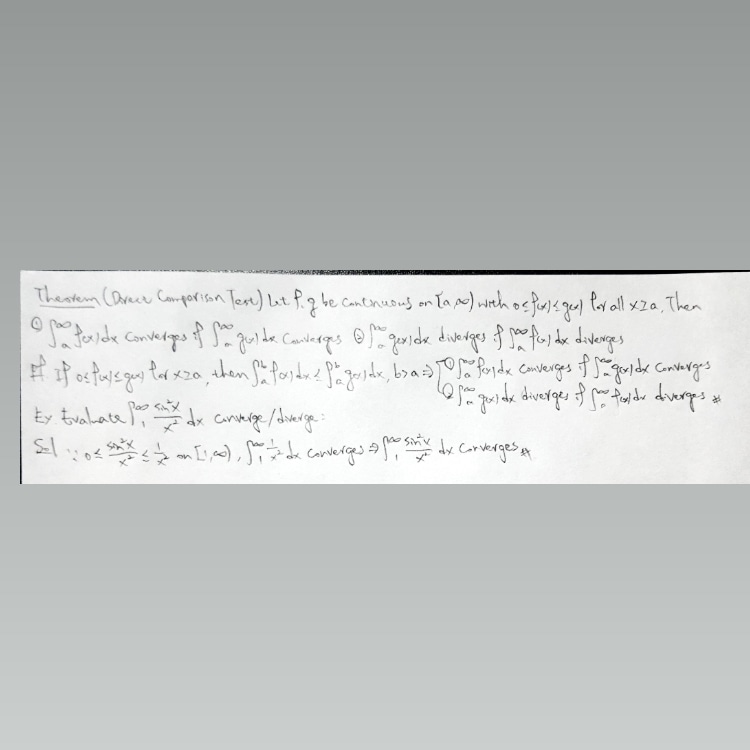 Theorem (Direct Comparison Test) Let f, g be continuous on [a,∞) with 0≤f(x)≤g(x) for all x≥a, Then
① ∫_a^∞ f(x)dx converges if ∫_a^∞ g(x)dx converges ② ∫_a^∞ g(x)dx diverges if ∫_a^∞ f(x)dx diverges
pf If 0≤f(x)≤g(x) for x≥a, then ∫_a^b f(x)dx ≤ ∫_a^b g(x)dx, b>a ⇒ ① ∫_a^∞ f(x)dx converges if ∫_a^∞ g(x)dx converges
② ∫_a^∞ g(x)dx diverges if ∫_a^∞ f(x)dx diverges #
Ex. Evaluate ∫_1^∞ sin²x/x² dx converge/diverge:
Sol ∵ 0≤ sin²x/x² ≤ 1/x² on [1,∞), ∫_1^∞ 1/x² dx converges ⇒ ∫_1^∞ sin²x/x² dx converges #